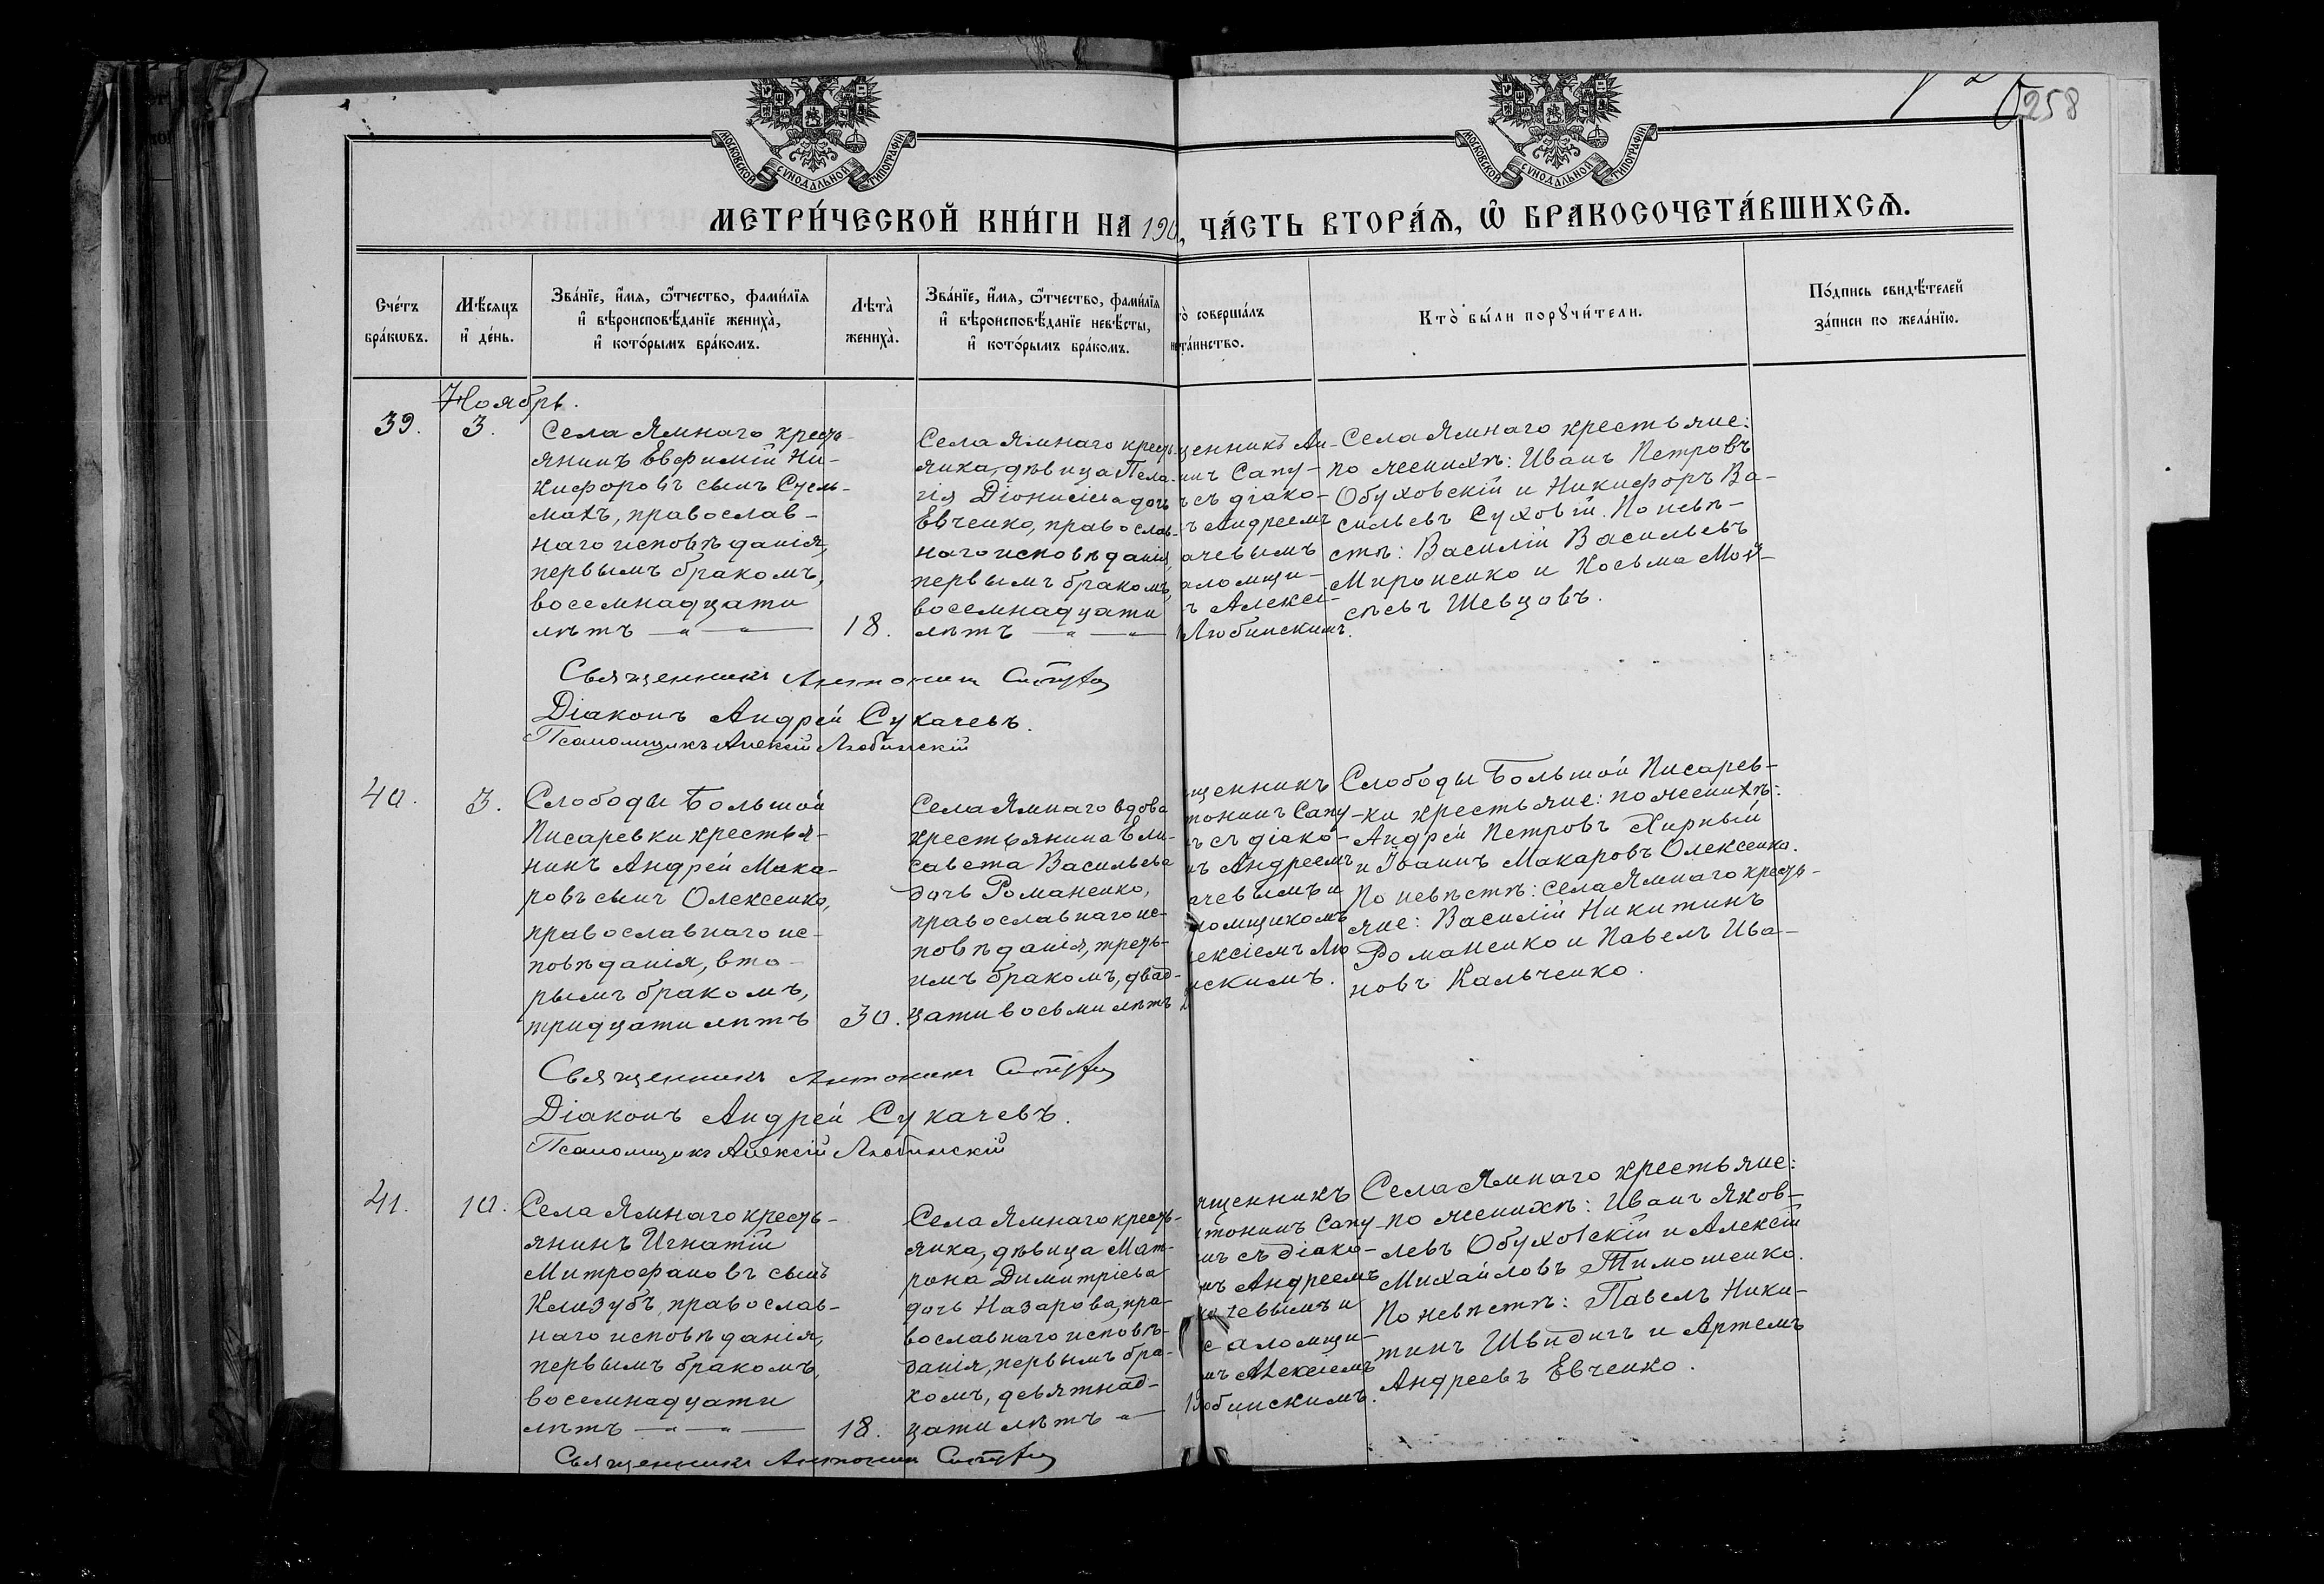 258
МОСКОВСКОЙ СУНОДАЛЬНОЙ ТИПОГРАФІИ
МОСКОВСКОЙ СУНОДАЛЬНОЙ ТИПОГРАФІИ
МЕТРИ́ЧЕСКОЙ КНИ́ГИ НА 190, ЧА́СТЬ ВТОРА́Ѧ, Ѽ БРАКОСОЧЕТА́ВШИХСѦ.
Сче́тъ
бра́кѡвъ.
Мѣ́сяцъ
и҆ де́нь.
Зва́нїе, и҆́мя, ѻ҆́тчество, фами́лїя
и҆ вѣроисповѣ́данїе жениха̀,
и҆ кото́рымъ бра́комъ.
Лѣта̀
жениха̀.
Зва́нїе, и҆́мя, ѻ҆́тчество, фами́лїя
и҆ вѣроисповѣ́данїе невѣ́сты,
и҆ кото́рымъ бра́комъ.
то̀ соверша́лъ
та́инство.
Кто̀ бы́ли порꙋчи́тели.
По́дпись свидѣ́телей
за́писи по жела́нїю.
Ноябрь.
39.
3.
Села Ямнаго кресть-
янинъ Евфимій Ни-
кифоровъ сынъ
православ-
наго исповѣданія,
первымъ бракомъ,
восемнадцати
лѣтъ — " — " —
18.
Села Ямнаго кресть-
янка, дѣвица Пела-
гія Діонисіева дочь
Евченко, православ-
наго исповѣданія,
первымъ бракомъ,
восемнадцати
лѣтъ — " — "
щенникъ Ан-
нинъ Сапу-
ъ съ діако-
ъ Андреемъ
ачевымъ
аломщи-
ъ Алексі-
Любинскимъ.
Села Ямнаго крестьяне:
по женихѣ: Иванъ Петровъ
Обуховскій и Никифоръ Ва-
сильевъ Суховій. По невѣ-
стѣ: Василій Васильевъ
Мироненко и Косьма Мой-
сѣевъ Шевцовъ.
Священникъ Антонинъ
Діаконъ Андрей Сукачевъ.
Псаломщикъ Алексій Любинскій
40.
3.
Слободы Большой
Писаревки крестья-
нинъ Андрей Мака-
ровъ сынъ Олексенко,
православнаго ис-
повѣданія, вто-
рымъ бракомъ,
тридцати лѣтъ
30.
Села Ямнаго вдова
крестьянина Ели-
савета Васильева
дочь Романенко,
православнаго ис-
повѣданія, треть-
имъ бракомъ, двад-
цати восьми лѣтъ
щенникъ
тонинъ Сапу-
ъ съ діако-
ъ Андреемъ
ачевымъ и
ломщикомъ
ексіемъ Лю
нскимъ.
Слободы Большой Писарев-
ки крестьяне: по женихѣ:
Андрей Петровъ Хирный
и Іоаннъ Макаровъ Олексенко.
По невѣстѣ: села Ямнаго кресть-
яне: Василій Никитинъ
Романенко и Павелъ Ива-
новъ Кальченко.
Священникъ Антонинъ
Діаконъ Андрей Сукачевъ.
Псаломщикъ Алексій Любинскій
41.
10.
Села Ямнаго кресть-
янинъ Игнатій
Митрофановъ сынъ
православ-
наго исповѣданія,
первымъ бракомъ,
восемнадцати
лѣтъ — " — " —
18.
Села Ямнаго кресть-
янка, дѣвица Мат-
рона Димитріева
дочь Назарова, пра-
вославнаго исповѣ-
данія, первымъ бра-
комъ, девятнад-
цати лѣтъ " —
щенникъ
тонинъ Сапу-
ъ съ діако-
ъ Андреемъ
ачевымъ и
саломщи-
мъ Алексіемъ
юбинскимъ.
Села Ямнаго крестьяне:
по женихѣ: Иванъ Яков-
левъ Обуховскій и Алексій
Михайловъ Тимошенко.
По невѣстѣ: Павелъ Ники-
тинъ Швидичъ и Артемъ
Андреевъ Евченко.
Священникъ Антонинъ